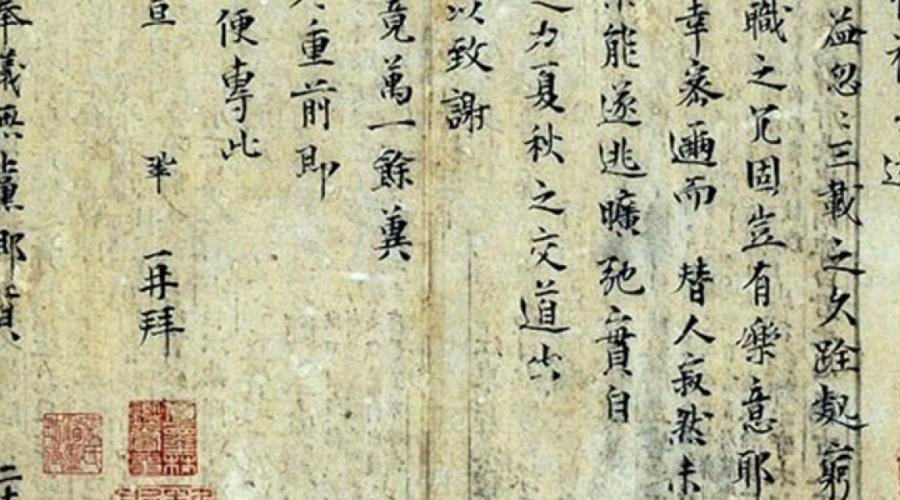 益忽〻三載之久跧處窮
職之冗固豈有樂意耶
幸密邇而 替人寂然未
能遂逃曠弛實自
之力夏秋之交道出
以致謝
竟萬一餘冀
重前即
便專此
宣 鞏 再拜
奉議無黨鄉